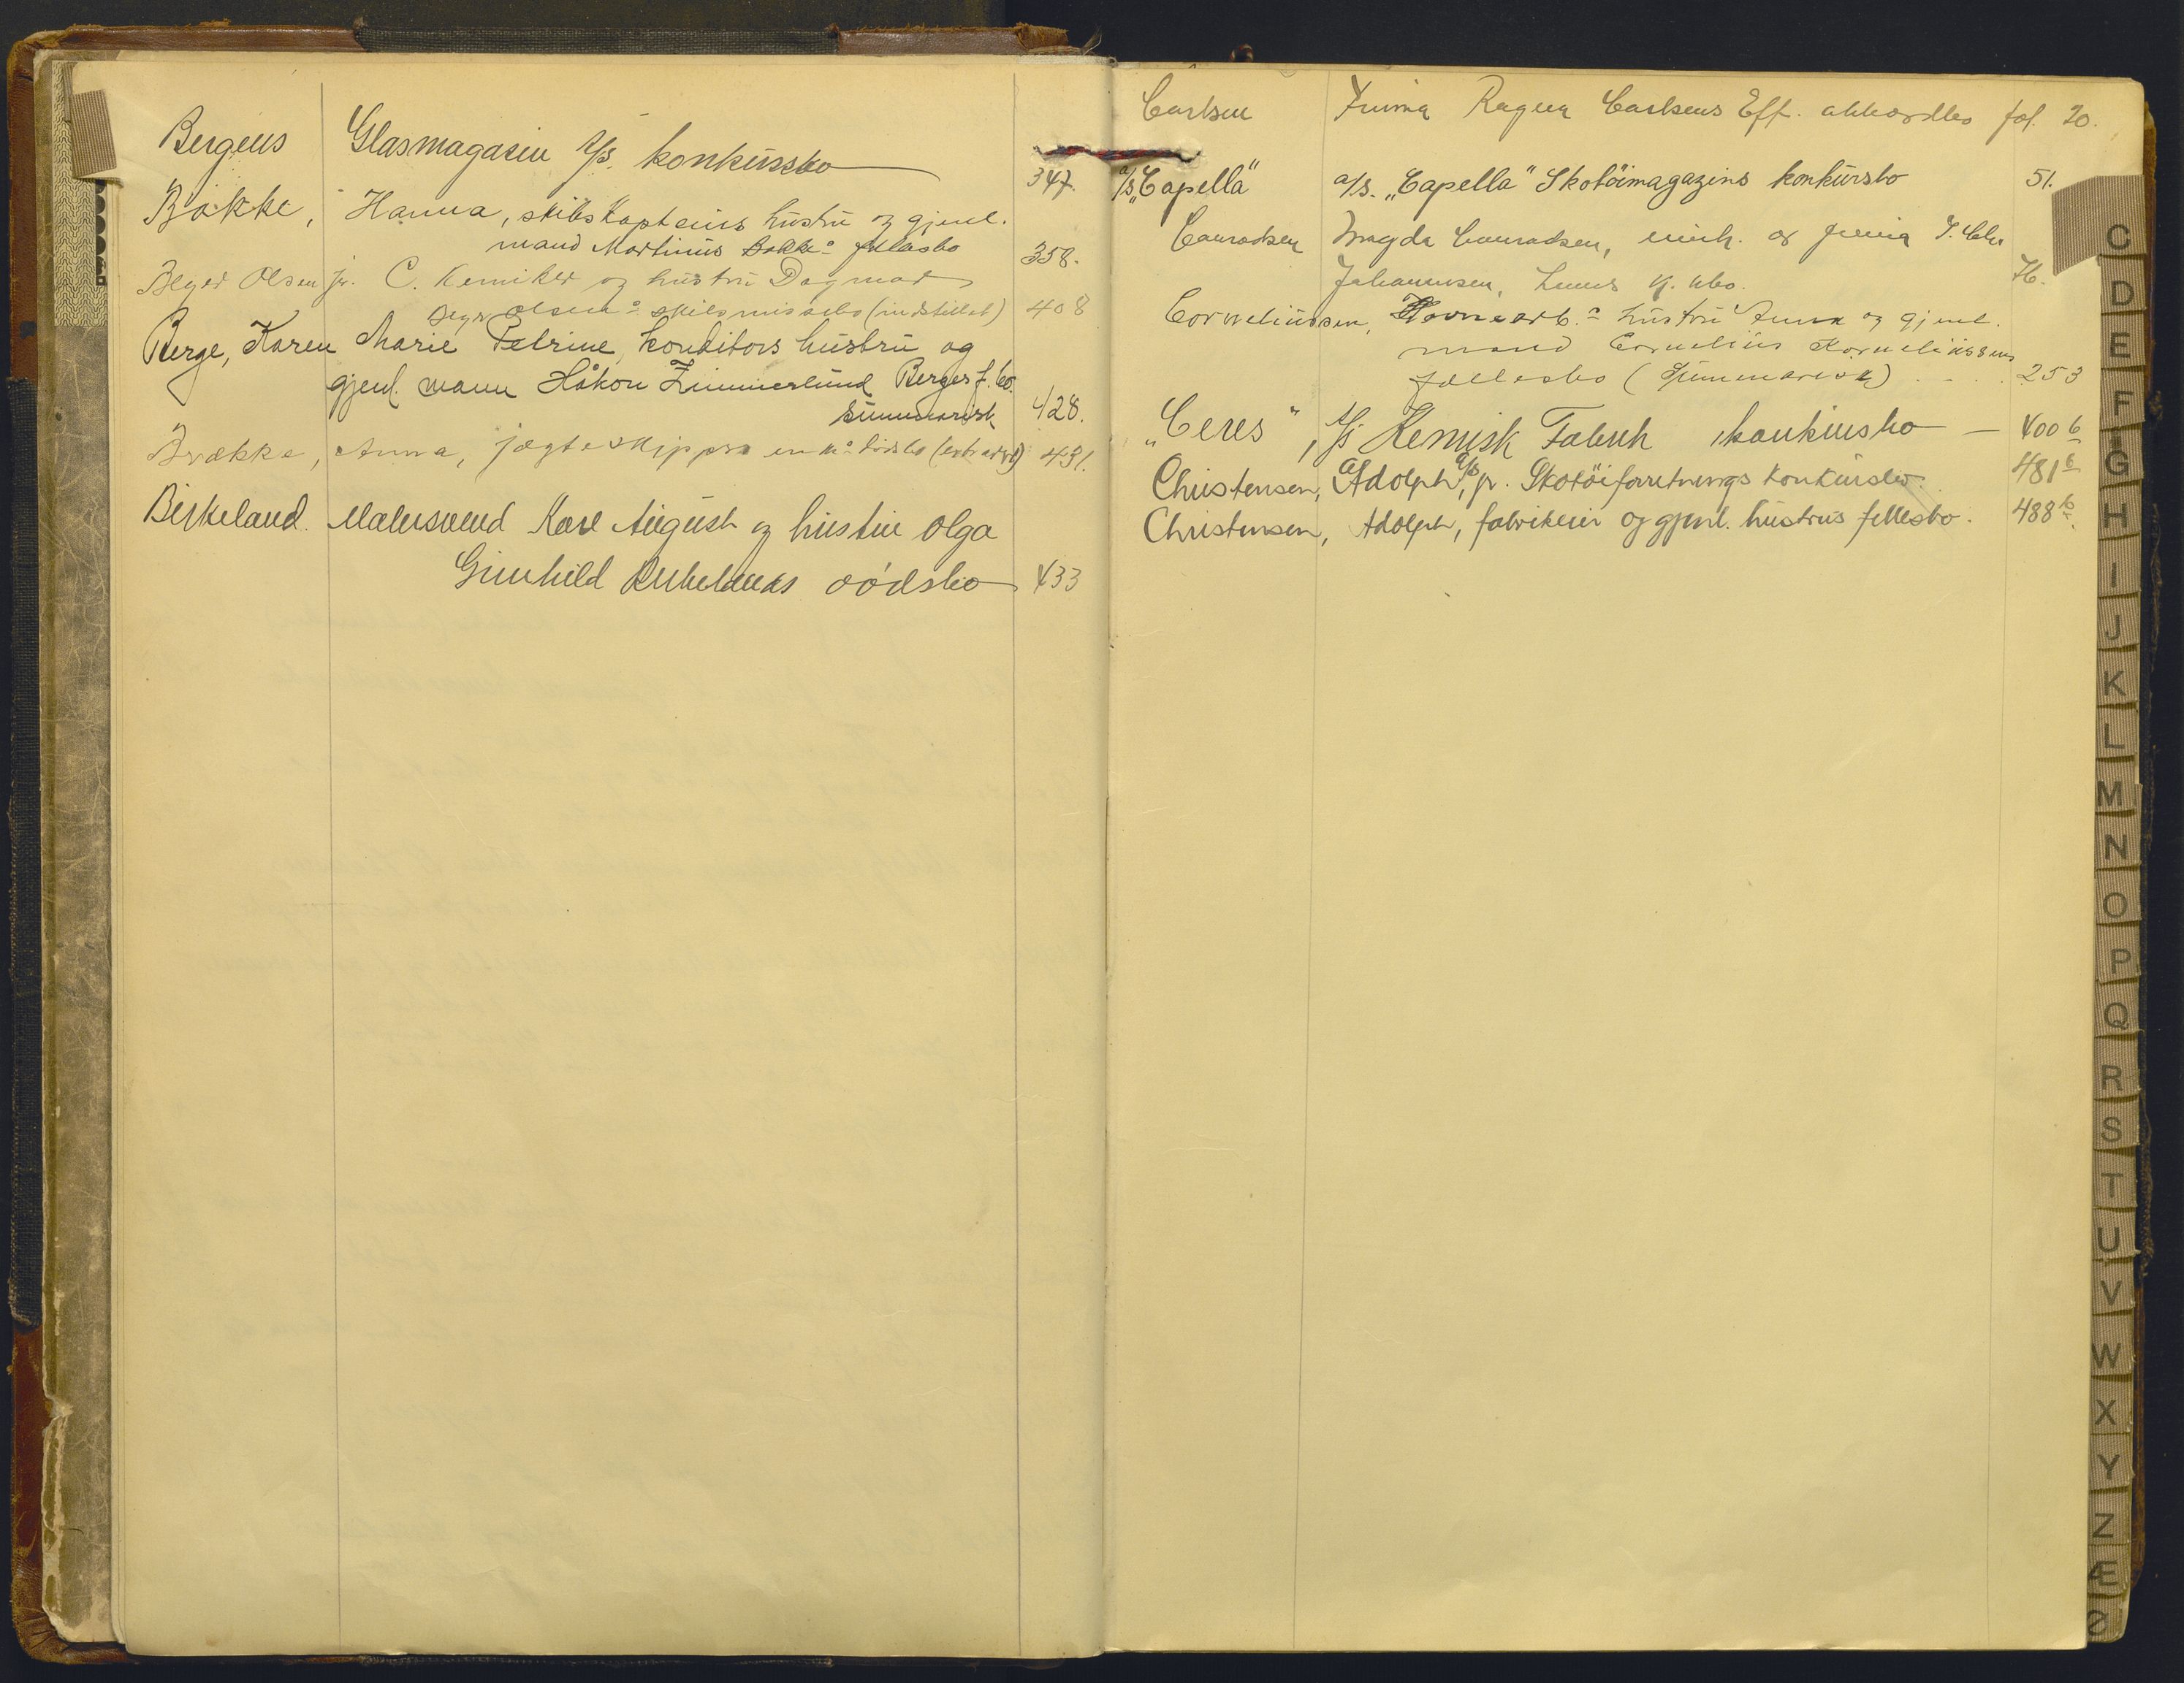 Bergens Glasmagasin A/s. konkursbo 347.
Bakke, Hanna, skibskapteins hustru og gjenl.
mand Martinus Bakkes fællesbo 358.
Beyer Olsen jr. C. Kemiker og hustru Dagmar
Beyer Olsens skilsmissebo (indstillet) 408
Berge, Karen Marie Petrine, konditors hustru og
gjenl. mann Håkon Zimmerlund Berges f. bo.
summarisk 428.
Brække, Anna, jægteskippers enkes dødsbo 431.
Birkeland. Malersvend Karl August og hustru Olga
Gunhild Birkelands dødsbo 433
Carlsen Firma Ragna Carlsens Eff. akkordbo fol. 20.
A/s „Capella" a/s. „Capella" Skotöimagazins konkursbo 51.
Conradsen Magda Conradsen, enk. og firma J. Chr.
Johannesen, k. bo. 76.
Corneliussen, Havnearb.s hustru Anna og gjenl.
mand Cornelius Korneliussens
fællesbo (Summarisk) . . . . 253
„Ceres", A/s Kemisk Fabrik konkursbo — 400 b
Christensen, Adolph, a/s jr. Skotöiforretnings konkursbo. 481 b
Christensen, Adolph, fabrikeier og gjenl. hustrus fellesbo. 488 b.
C
D
E
F
G
H
I
J
K
L
M
N
O
P
Q
R
S
T
U
V
W
X
Y
Z
Æ
Ø